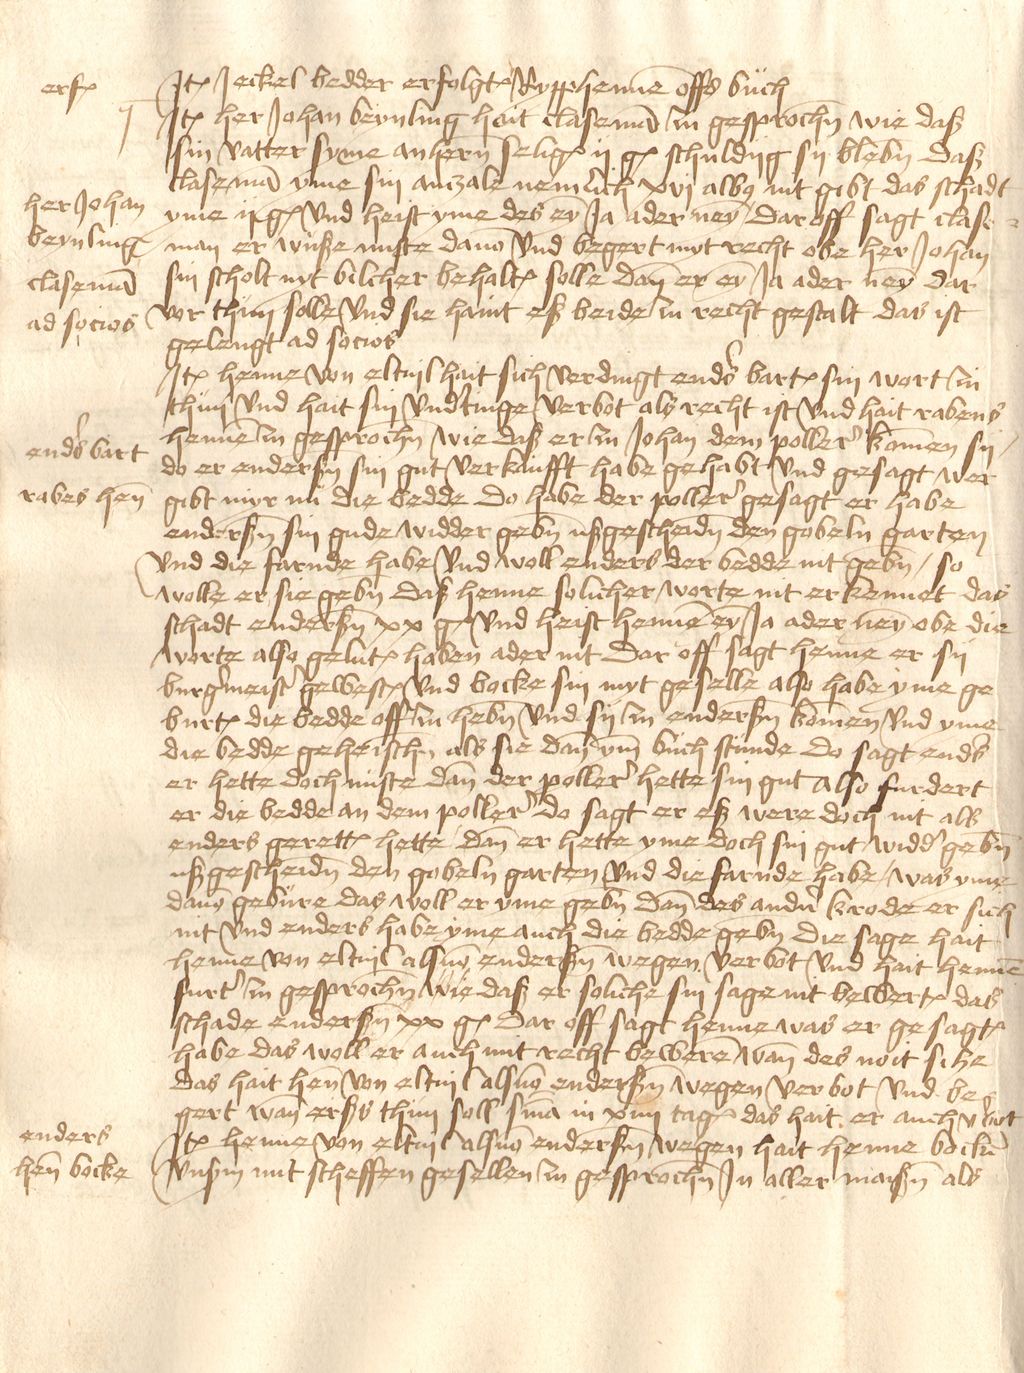 erf
Jt Jeckel bedder erfolgt Rypphenne offs buch
Jt her Johan beynling hait clasema in gesprochn wie daß
sin vatter syme anhern selig ij g schuldig sy blebn daß
clasema yme sin anzale nemlich xvj albo nit gibt das schadt
her Johan
beynling
yme ij g vnd heist yme des ey Ja ader ney Dar off sagt clase
man er wuße niste dauo vnd begert myt recht obe her Johan
clasema
sin scholt nyt bilcher behalt solle dan er ey Ja ader ney dar
ad socios
vor thun solle vnd sie haint eß beide in recht gestalt das ist
gelengt ad socios
Jt henne von eltuil hait sich verdingt ends bart sin wort in
thun vnd hait sin vndtinge verbot als recht ist vnd hait rabens
ends bart
henne in gesprochn wie daß er in Johan dem poller komen sy
do er endersn sin gut verkaufft habe gehabt vnd gesagt wer
rabes hen
gibt myr nu die bedde do habe der poller gesagt er habe
endersn sin gude widder gebn ußgescheidn den gobeln garten
vnd die farnde habe vnd woll enders der bedde nit gebn / so
wolle er sie gebn daß henne solicher worte nit erkennet das
schadt endersn xx g vnd heist henne ey Ja ader ney obe die
worte also gelut haben ader nit Dar off sagt henne er sy
burgmeist gewest vnd bocke sin myt geselle also habe yme ge
burt die bedde off in hebn vnd sy in endersn komen vnd yme
die bedde geheischn als sie dan ym buch stunde do sagt ends
er hette doch niste dan der poller hette sin gut also furdert
er die bedde an dem poller do sagt er eß were doch nit als
enders gerett hette dan er hette yme doch sin gut widd gebn
ußgescheidn den gobeln garten vnd die farnde habe / was yme
dauo gebure das woll er yme gebn dan des andn krode er sich
nit vnd enders habe yme auch die bedde gebn die sage hait
henne von eltuil alsuo endersn wegen verbot vnd hait henne
furt in gesprochn wie daß er soliche sin sage nit bewert das
schade endersn xx g Dar off sagt henne was er gesagt
habe das woll er auch mit recht bewere wan des noit sihe
das hait hen von eltuil alsuo endersn wegen verbot vnd be
gert wan erß thun soll sma in xiiij tag das hait er auch vbot
enders
Jt henne von eltuil alsuo endersn wegen hait henne bocku
hen bocke
vnsm mit scheffen gesellen in gesprochn In aller maißn als